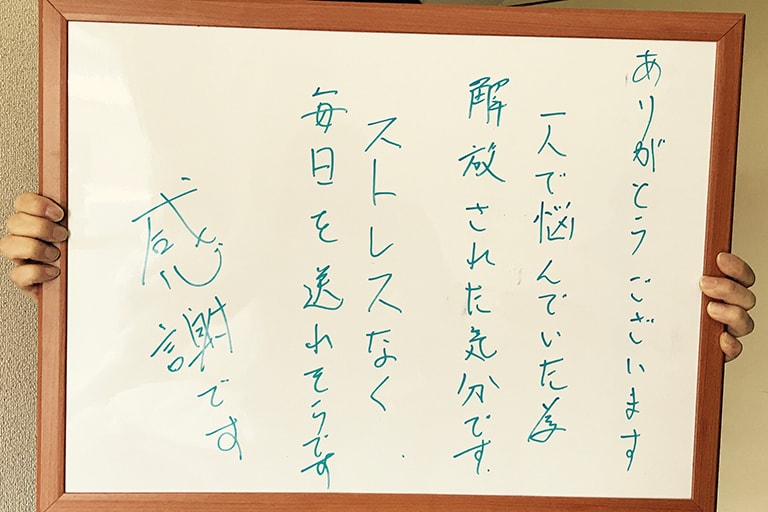 ありがとうございます
一人で悩んでいた為
解放された気分です
ストレスなく
毎日を送れそうです
感謝です